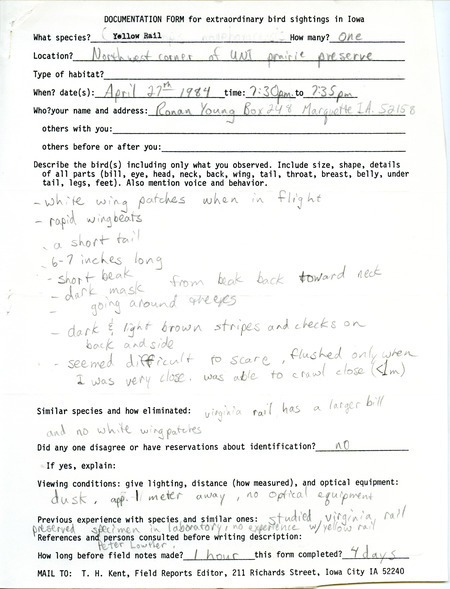 DOCUMENTATION FORM for extraordinary bird sightings in Iowa
What species? Yellow Rail How many? one
Location? Northwest corner of UNI prairie preserve
Type of habitat?
When? date(s): April 27th 1984 time: 7:30pm to 7:35pm
Who?your name and address: Ronan Young Box 248 Marquette IA. 52158
others with you:
others before or after you:
Describe the bird(s) including only what you observed. Include size, shape, details
of all parts (bill, eye, head, neck, back, wing, tail, throat, breast, belly, under
tail, legs, feet). Also mention voice and behavior.
- white wing patches when in flight
- rapid wingbeats
- a short tail
- 6-7 inches long
- short beak
- dark mask from beak back toward neck
- going around
- dark & light brown stripes and checks on
back and side
- seemed difficult to scare, flushed only when
I was very close. was able to crawl close (<1m)
Similar species and how eliminated: virginia rail has a larger bill
and no white wingpatches
Did any one disagree or have reservations about identification? no
If yes, explain:
Viewing conditions: give lighting, distance (how measured), and optical equipment:
dusk, app. 1 meter away, no optical equipment
Previous experience with species and similar ones: studied virginia rail
preserved specimen in laboratory, no experience w/yellow rail
References and persons consulted before writing description:
Peter Lowther,
How long before field notes made? 1 hour this form completed? 4 days
MAIL TO: T. H. Kent, Field Reports Editor, 211 Richards Street, Iowa City IA 52240